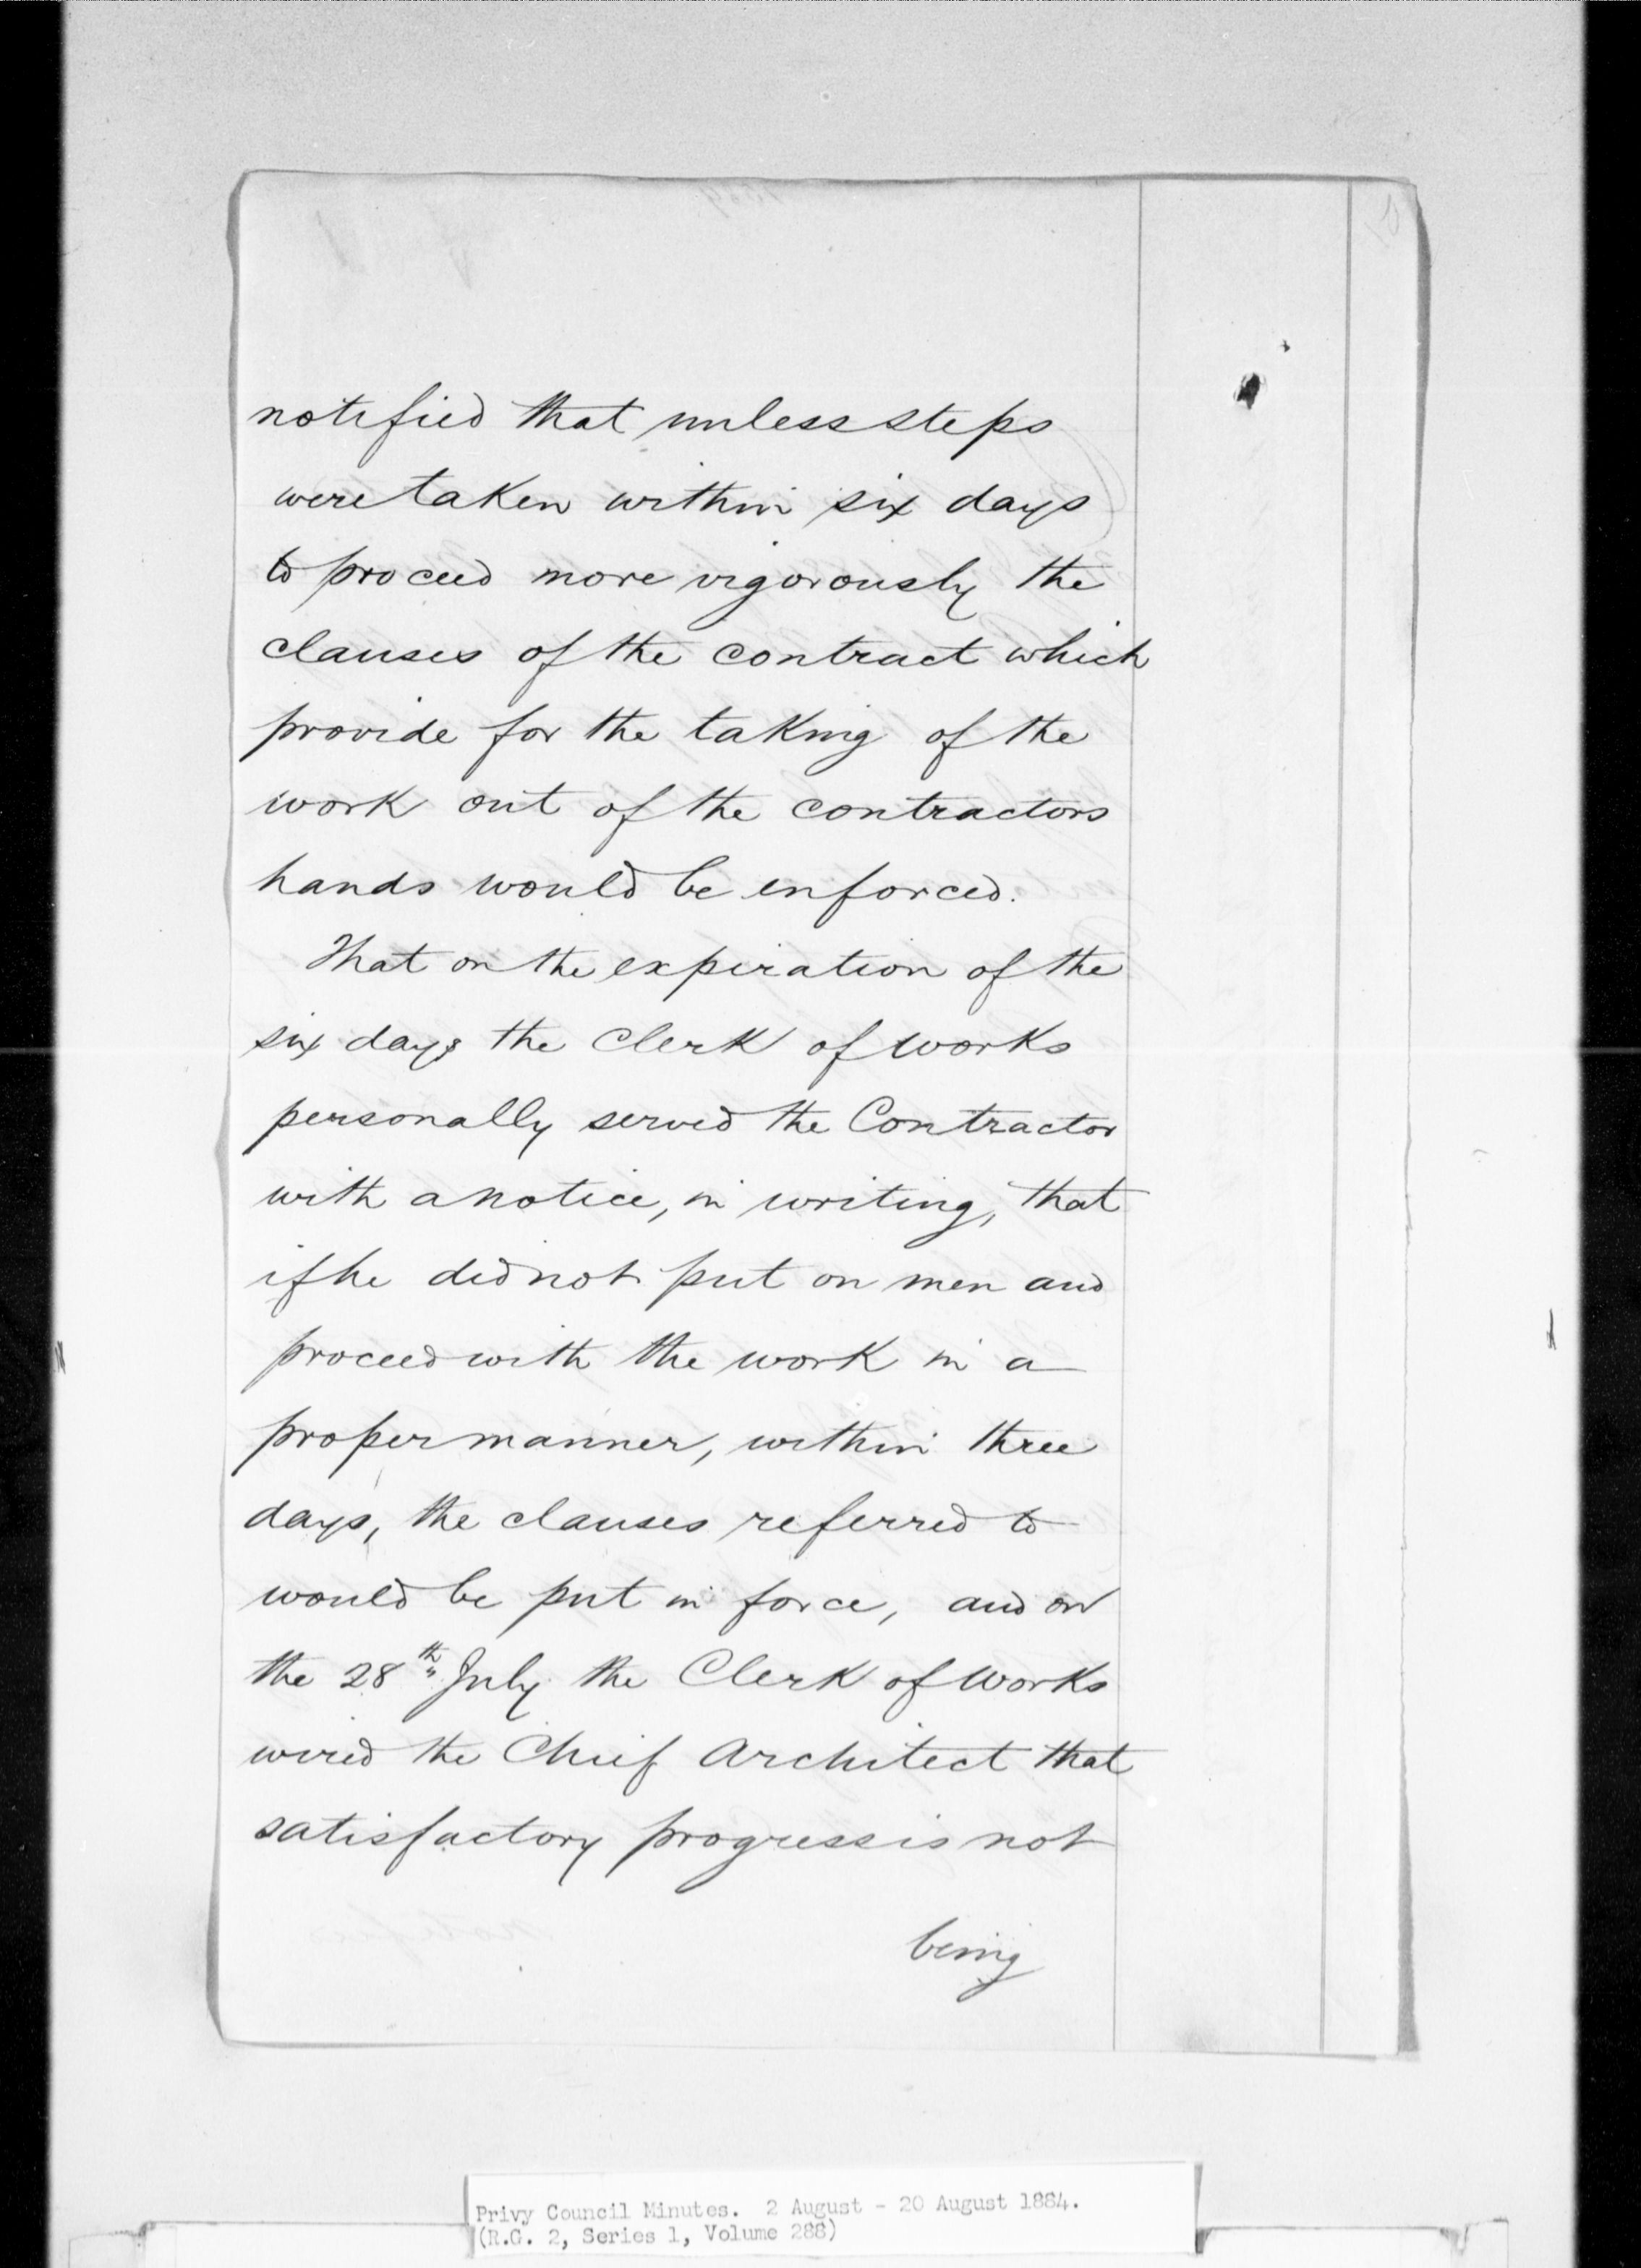 notified that unless steps
were taken within six days
to proceed more vigorously the
clauses of the contract which
provide for the taking of the
work out of the contractors
hands would be enforced.
That on the expiration of the
six days the Clerk of Works
personally served the Contractor
with a notice, in writing, that
if he did not put on men and
proceed with the work in a
proper manner, within three
days, the clauses referred to
would be put in force, and on
the 28th July the Clerk of Works
wired the Chief Architect that
satisfactory progress is not
being
Privy Council Minutes. 2 August - 20 August 1884.
(R.G. 2, Series 1, Volume 288)